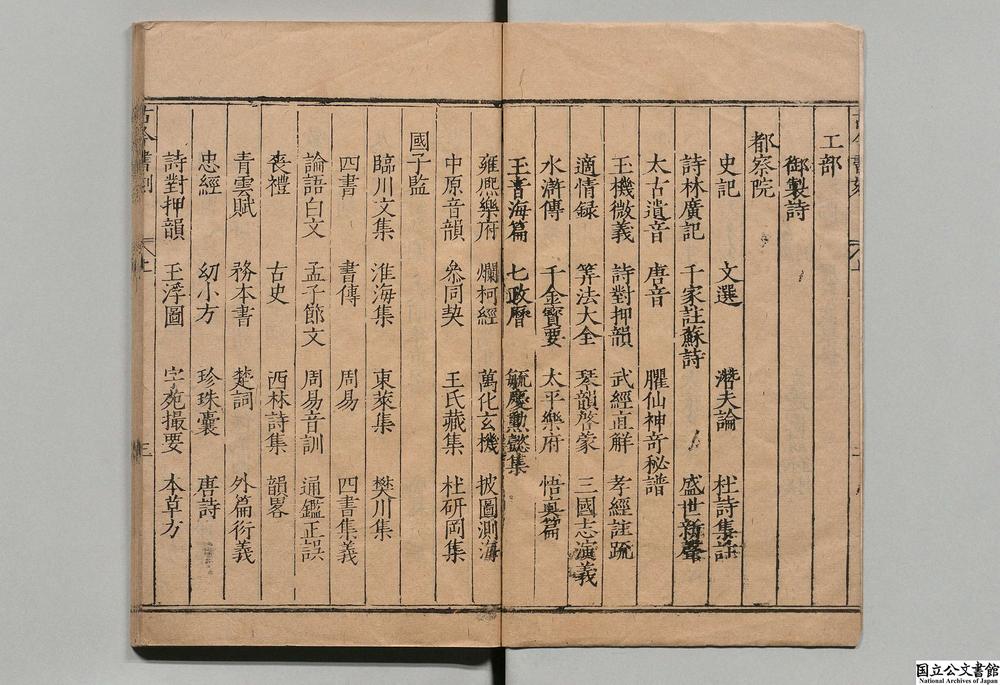 工部
御製詩
都察院
史記 文選 潛夫論 杜詩集註
詩林廣記 千家註蘇詩 盛世新聲
太古遺音 唐音 臞仙神奇秘譜
玉機微義 詩對押韻 武經直解 孝經註疏
適情録 筭法大全 琴韻啓蒙 三國志演義
水滸傳 千金寶要 太平樂府 悟真篇
玉音海篇 七政曆 毓慶勳懿集
雍熙樂府 爛柯經 萬化玄機 披圖測海
中原音韻 叅同契 王氏藏集 杜研岡集
國子監
臨川文集 淮海集 東萊集 樊川集
四書 書傳 周易 四書集義
論語白文 孟子節文 周易音訓 通鑑正誤
喪禮 古史 西林詩集 韻畧
青雲賦 務本書 楚詞 外篇衍義
忠經 幼小方 珍珠囊 唐詩
詩對押韻 玉浮圖 字苑撮要 本草方
国立公文書館
National Archives of Japan